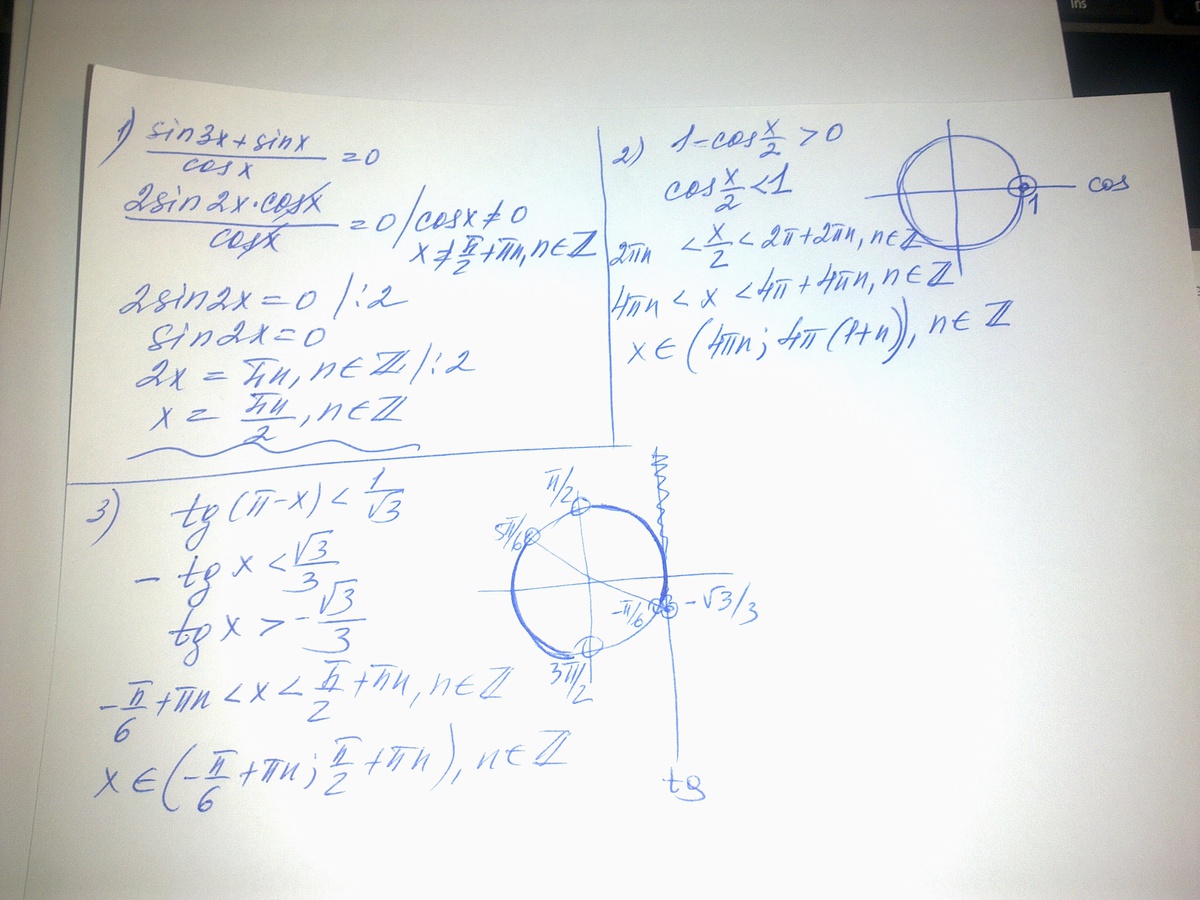 1) (sin3x + sinx)/cosx = 0
(2sin2x·cosx)/cosx = 0 / cosx ≠ 0
x ≠ π/2 + πn, n∈ℤ
2sin2x = 0 /:2
sin2x = 0
2x = πn, n∈ℤ /:2
x = πn/2, n∈ℤ
2) 1-cos x/2 > 0
cos x/2 < 1
2πn < x/2 < 2π+2πn, n∈ℤ
4πn < x < 4π+4πn, n∈ℤ
x∈(4πn; 4π(1+n)), n∈ℤ
cos
1
3) tg(π-x) < 1/√3
- tg x < √3/3
tg x > -√3/3
-π/6 + πn < x < π/2 + πn, n∈ℤ
x∈(-π/6 + πn; π/2 + πn), n∈ℤ
π/2
5π/6
-π/6
-√3/3
3π/2
tg
ins